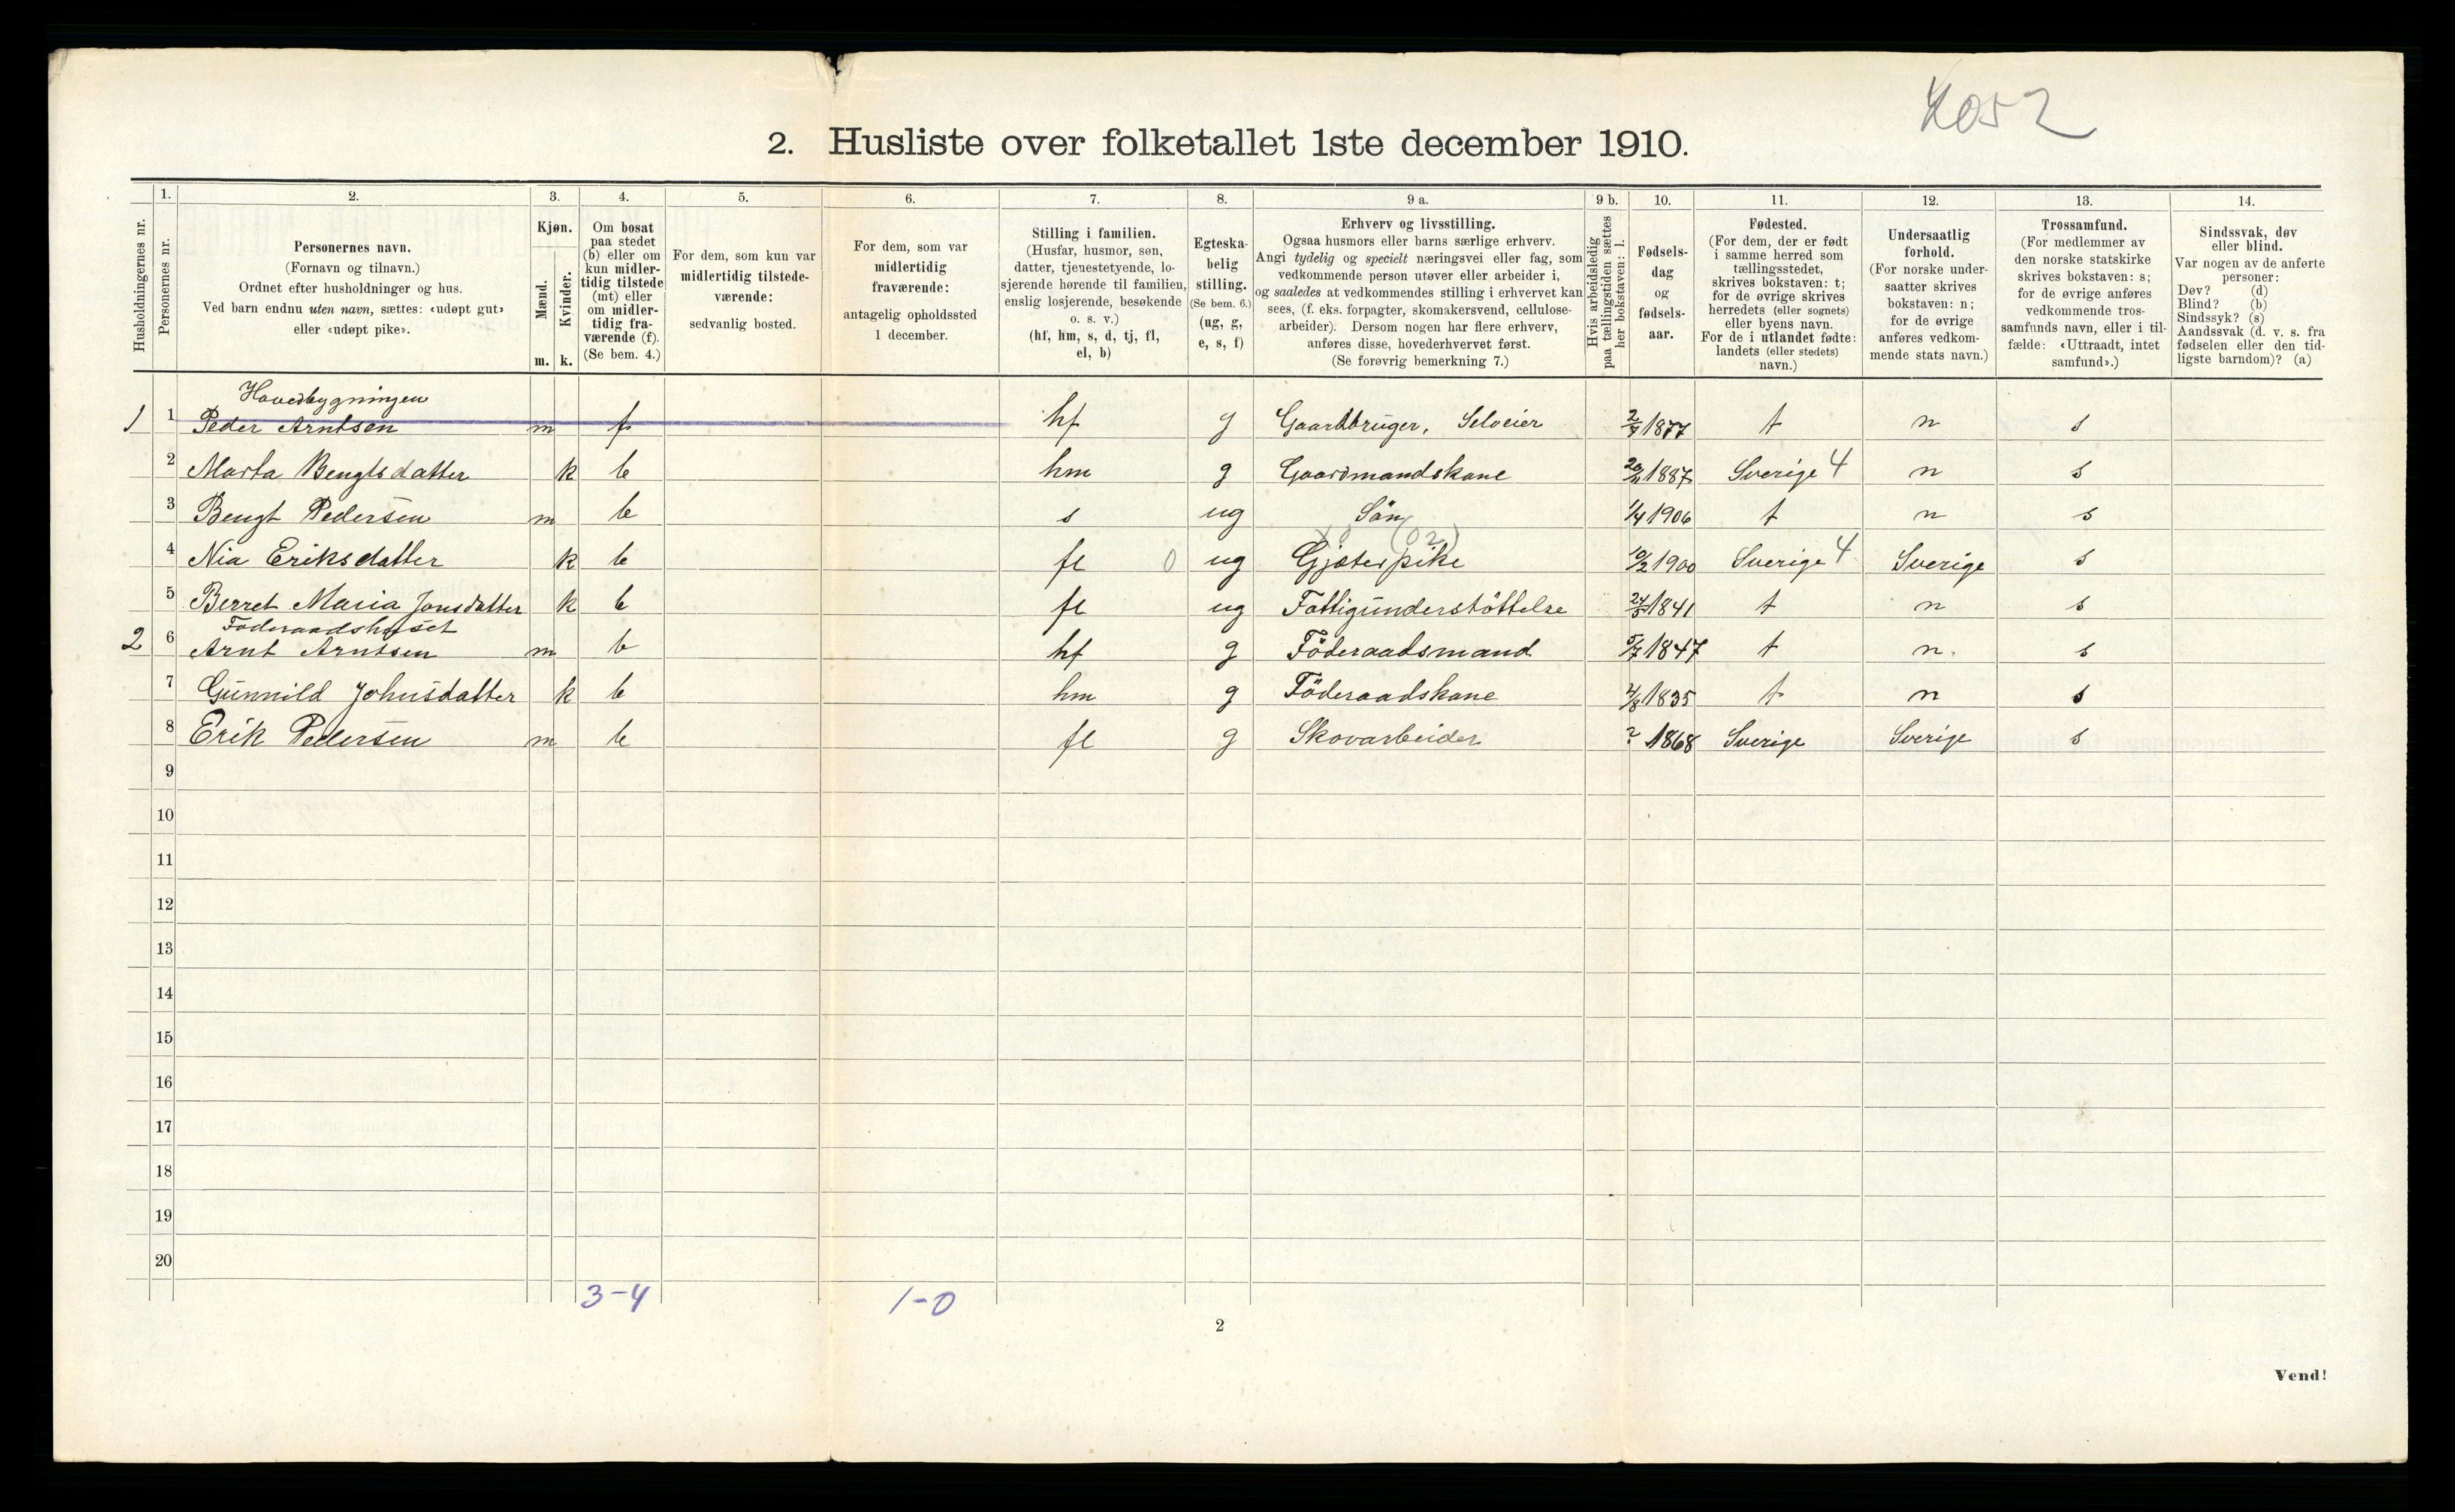 4052
2. Husliste over folketallet 1ste december 1910.
Husholdningernes nr.
1.
Personernes nr.
2.
Personernes navn.
(Fornavn og tilnavn.)
Ordnet efter husholdninger og hus.
Ved barn endnu uten navn, sættes: «udøpt gut»
eller «udøpt pike».
3.
Kjøn.
Mænd.
Kvinder.
m. k.
4.
Om bosat
paa stedet
(b) eller om
kun midler-
tidig tilstede
(mt) eller
om midler-
tidig fra-
værende (f).
(Se bem. 4.)
5.
For dem, som kun var
midlertidig tilstede-
værende:
sedvanlig bosted.
6.
For dem, som var
midlertidig
fraværende:
antagelig opholdssted
1 december.
7.
Stilling i familien.
(Husfar, husmor, søn,
datter, tjenestetyende, lo-
sjerende hørende til familien,
enslig losjerende, besøkende
o. s. v.)
(hf, hm, s, d, tj, fl,
el, b)
8.
Egteska-
belig
stilling.
(Se bem. 6.)
(ug, g,
e, s, f)
9 a.
Erhverv og livsstilling.
Ogsaa husmors eller barns særlige erhverv.
Angi tydelig og specielt næringsvei eller fag, som
vedkommende person utøver eller arbeider i,
og saaledes at vedkommendes stilling i erhvervet kan
sees, (f. eks. forpagter, skomakersvend, cellulose-
arbeider). Dersom nogen har flere erhverv,
anføres disse, hovederhvervet først.
(Se forøvrig bemerkning 7.)
9 b.
Hvis arbeidsledig
paa tællingstiden sættes
her bokstaven: l.
10.
Fødsels-
dag
og
fødsels-
aar.
11.
Fødested.
(For dem, der er født
i samme herred som
tællingsstedet,
skrives bokstaven: t;
for de øvrige skrives
herredets (eller sognets)
eller byens navn.
For de i utlandet fødte:
landets (eller stedets)
navn.)
12.
Undersaatlig
forhold.
(For norske under-
saatter skrives
bokstaven: n;
for de øvrige
anføres vedkom-
mende stats navn.)
13.
Trossamfund.
(For medlemmer av
den norske statskirke
skrives bokstaven: s;
for de øvrige anføres
vedkommende tros-
samfunds navn, eller i til-
fælde: «Uttraadt, intet
samfund».)
14.
Sindssvak, døv
eller blind.
Var nogen av de anførte
personer:
Døv? (d)
Blind? (b)
Sindssyk? (s)
Aandssvak (d. v. s. fra
fødselen eller den tid-
ligste barndom)? (a)
Hovedbygningen
1 1 Peder Arntsen m f hf g Gaardbruger, Selveier 2/7 1877 t n s
2 Marta Bengtsdatter k b hm g Gaardmandskone 1887 Sverige 4 n s
3 Bengt Pedersen m b s ug Sön 1/4 1906 t n s
(02)
4 Nia Eriksdatter k b fl 0 ug Gjæterpike 10/2 1900 Sverige 4 Sverige s
5 Berret Maria Jonsdatter k b fl ug Fattigunderstöttelse 24/5 1841 t n s
Föderaadshuset
2 6 Arnt Arntsen m b hf g Föderaadsmand 5/7 1847 t n. s
7 Gunnild Johnsdatter k b hm g Föderaadskone 4/8 1835 t n s
8 Erik Pedersen m b fl g Skovarbeider ? 1868 Sverige Sverige s
9
10
11
12
13
14
15
16
17
18
19
20
3-4 1-0
2
Vend!